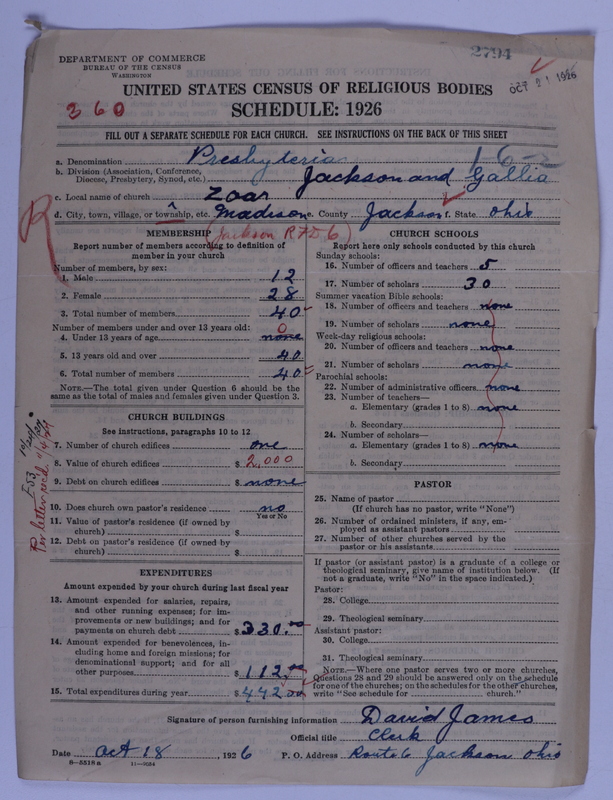 2794
DEPARTMENT OF COMMERCE
BUREAU OF THE CENSUS
WASHINGTON
OCT 21 1926
UNITED STATES CENSUS OF RELIGIOUS BODIES
360
SCHEDULE: 1926
FILL OUT A SEPARATE SCHEDULE FOR EACH CHURCH. SEE INSTRUCTIONS ON THE BACK OF THIS SHEET
a. Denomination Presbyteria 16-2
b. Division (Association, Conference, Diocese, Presbytery, Synod, etc.) Jackson and Gallia
c. Local name of church Zoar
d. City, town, village, or township, etc. Madison e. County Jackson f. State Ohio
(Jackson RFD 6)
R
MEMBERSHIP
Report number of members according to definition of
member in your church
Number of members, by sex:
1. Male 12
2. Female 28
3. Total number of members 40
Number of members under and over 13 years old:
4. Under 13 years of age none 0
5. 13 years old and over 40
6. Total number of members 40
NOTE.—The total given under Question 6 should be
the same as the total of males and females given under Question 3.
CHURCH BUILDINGS
See instructions, paragraphs 10 to 12
7. Number of church edifices one
8. Value of church edifices $ 2,000
9. Debt on church edifices $ none
10. Does church own pastor's residence no
Yes or No
11. Value of pastor's residence (if owned by
church) $
12. Debt on pastor's residence (if owned by
church) $
Per letter recd. 11/4/27
EXPENDITURES
Amount expended by your church during last fiscal year
13. Amount expended for salaries, repairs,
and other running expenses; for im-
provements or new buildings; and for
payments on church debt $ 330.00
14. Amount expended for benevolences, in-
cluding home and foreign missions; for
denominational support; and for all
other purposes $ 112.00
15. Total expenditures during year $ 442.00
CHURCH SCHOOLS
Report here only schools conducted by this church
Sunday schools:
16. Number of officers and teachers 5
17. Number of scholars 30
Summer vacation Bible schools:
18. Number of officers and teachers none
19. Number of scholars none
Week-day religious schools:
20. Number of officers and teachers none
21. Number of scholars none
Parochial schools:
22. Number of administrative officers none
23. Number of teachers—
a. Elementary (grades 1 to 8) none
b. Secondary
24. Number of scholars—
a. Elementary (grades 1 to 8) none
b. Secondary
PASTOR
25. Name of pastor
(If church has no pastor, write "None")
26. Number of ordained ministers, if any, em-
ployed as assistant pastors
27. Number of other churches served by the
pastor or his assistants
If pastor (or assistant pastor) is a graduate of a college or
theological seminary, give name of institution below. (If
not a graduate, write "No" in the space indicated.)
Pastor:
28. College
29. Theological seminary
Assistant pastor:
30. College
31. Theological seminary
NOTE.—Where one pastor serves two or more churches,
Questions 28 and 29 should be answered only on the schedule
for one of the churches; on the schedules for the other churches,
write "See schedule for church."
Signature of person furnishing information David James
Official title Clerk
Date Oct 18, 1926 P. O. Address Route 6 Jackson Ohio
8-5518 a 11-9054